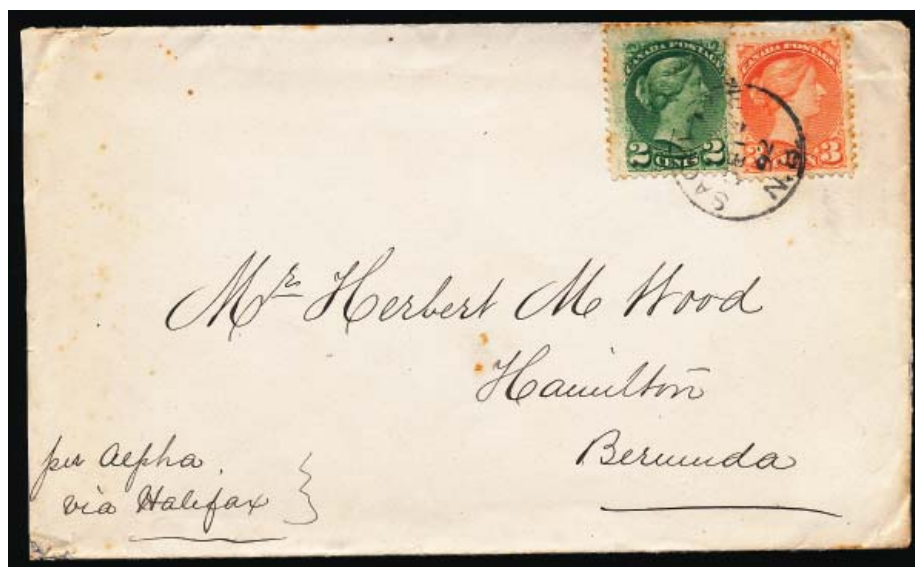 CANADA POSTAGE
2 CENTS 2
CANADA POSTAGE
3
N.B.
Mr Herbert M Wood
Hamilton
Bermuda
per Alpha.
via Halifax